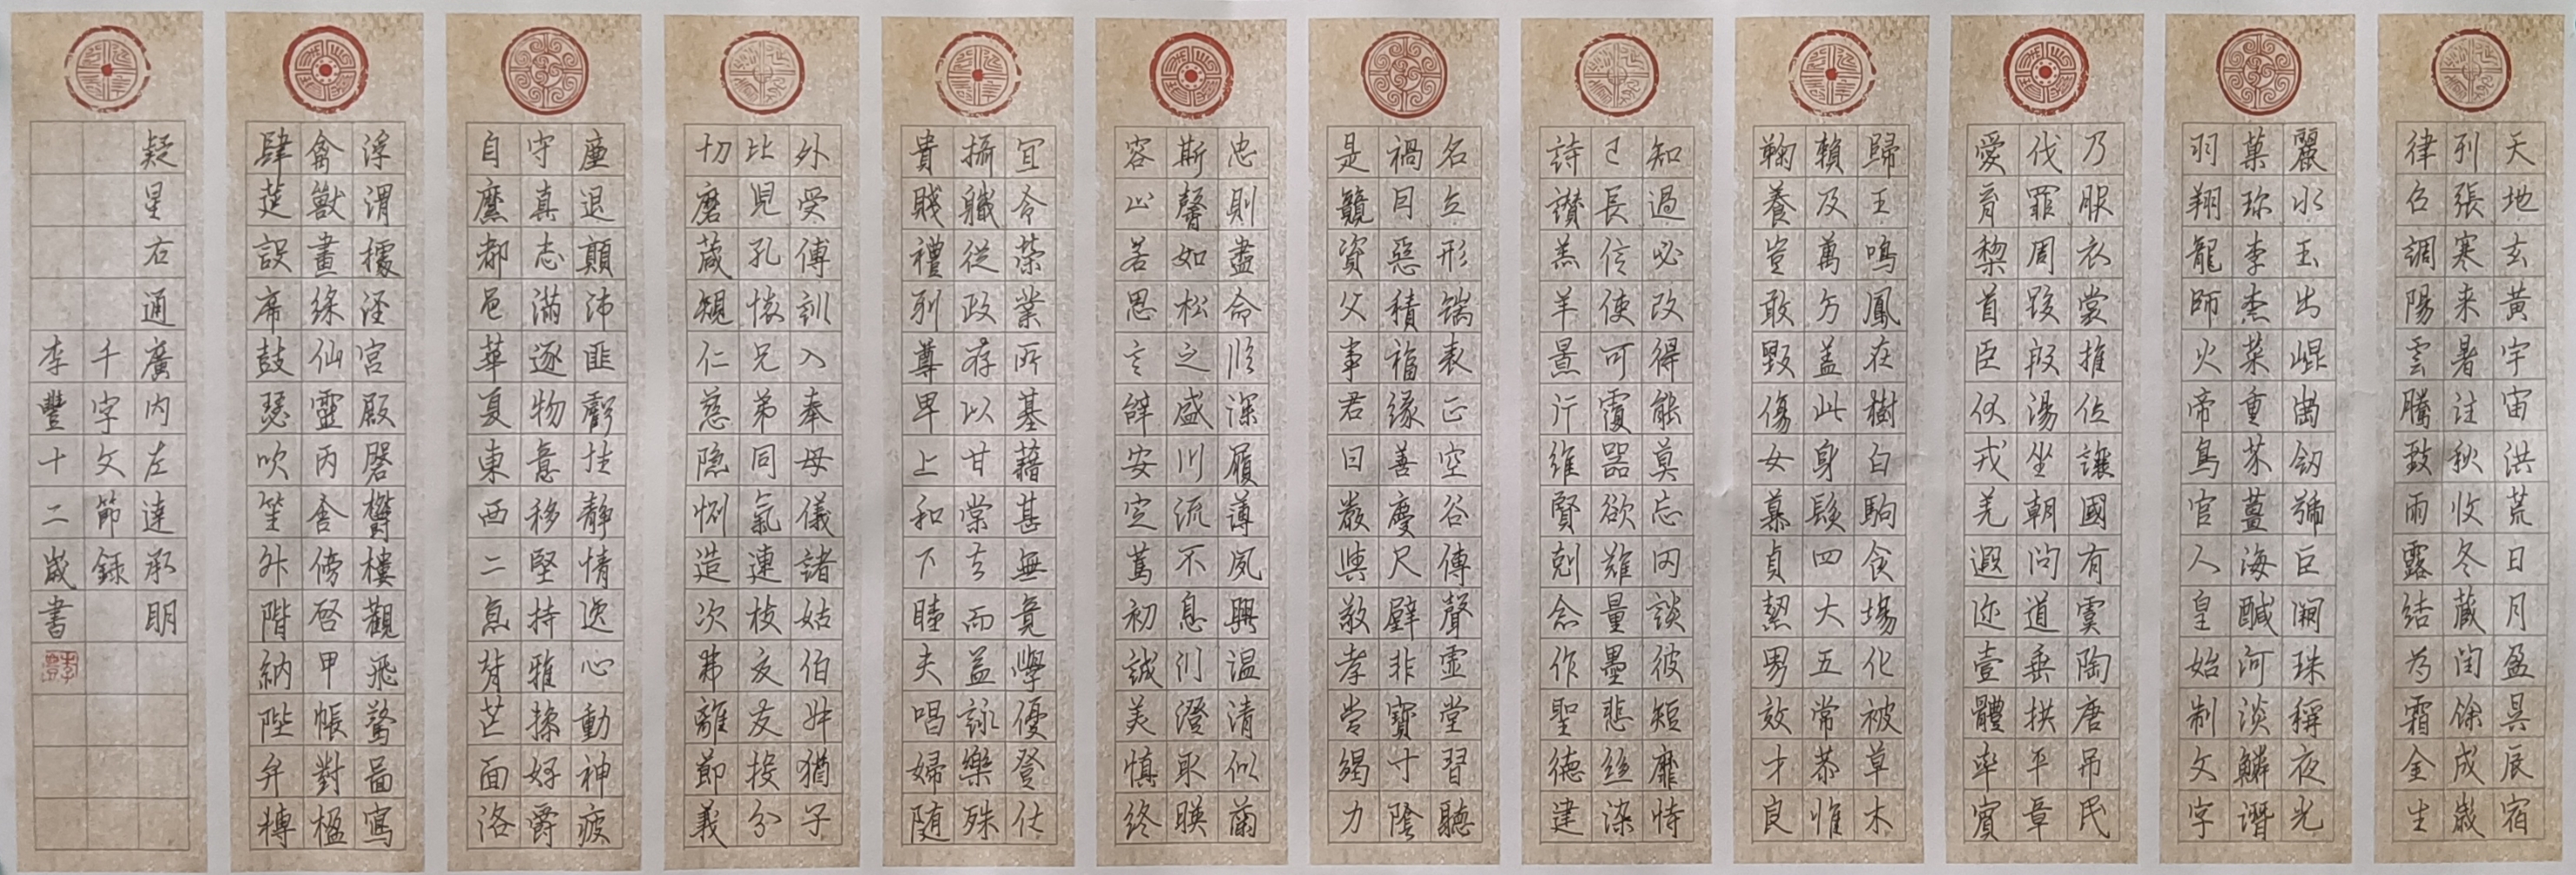 天地玄黃宇宙洪荒日月盈昃辰宿
列張寒来暑往秋收冬藏閏餘成歲
律吕調陽雲騰致雨露結為霜金生
麗水玉出崐崗劒號巨闕珠稱夜光
菓珎李柰菜重芥薑海醎河淡鱗潛
羽翔龍師火帝鳥官人皇始制文字
乃服衣裳推位讓國有虞陶唐吊民
伐罪周發殷湯坐朝問道垂拱平章
愛育黎首臣伏戎羌遐迩壹體率賓
歸王鳴鳳在樹白駒食場化被草木
賴及萬方盖此身髮四大五常恭惟
鞠養豈敢毀傷女慕貞絜男效才良
知過必改得能莫忘罔談彼短靡恃
己長信使可覆器欲難量墨悲絲染
詩讃羔羊景行維賢剋念作聖德建
名立形端表正空谷傳聲虛堂習聽
禍因惡積福緣善慶尺璧非寶寸陰
是競資父事君曰嚴與敬孝當竭力
忠則盡命臨深履薄夙興温清似蘭
斯馨如松之盛川流不息淵澄取暎
容止若思言辭安定篤初誠美慎終
宜令榮業所基藉甚無竟學優登仕
攝職從政存以甘棠去而益詠樂殊
貴賤禮別尊卑上和下睦夫唱婦随
外受傅訓入奉母儀諸姑伯叔猶子
比兒孔懷兄弟同氣連枝交友投分
切磨箴規仁慈隐惻造次弗離節義
廉退顛沛匪虧性靜情逸心動神疲
守真志滿逐物意移堅持雅操好爵
自縻都邑華夏東西二京背芒面洛
浮渭據涇宮殿磐鬱樓觀飛驚圖寫
禽獸畫綵仙靈丙舍傍啓甲帳對楹
肆筵設席鼓瑟吹笙升階納陛弁轉
疑星右通廣内左達承明
千字文節録
李豐十二歲書
李豐